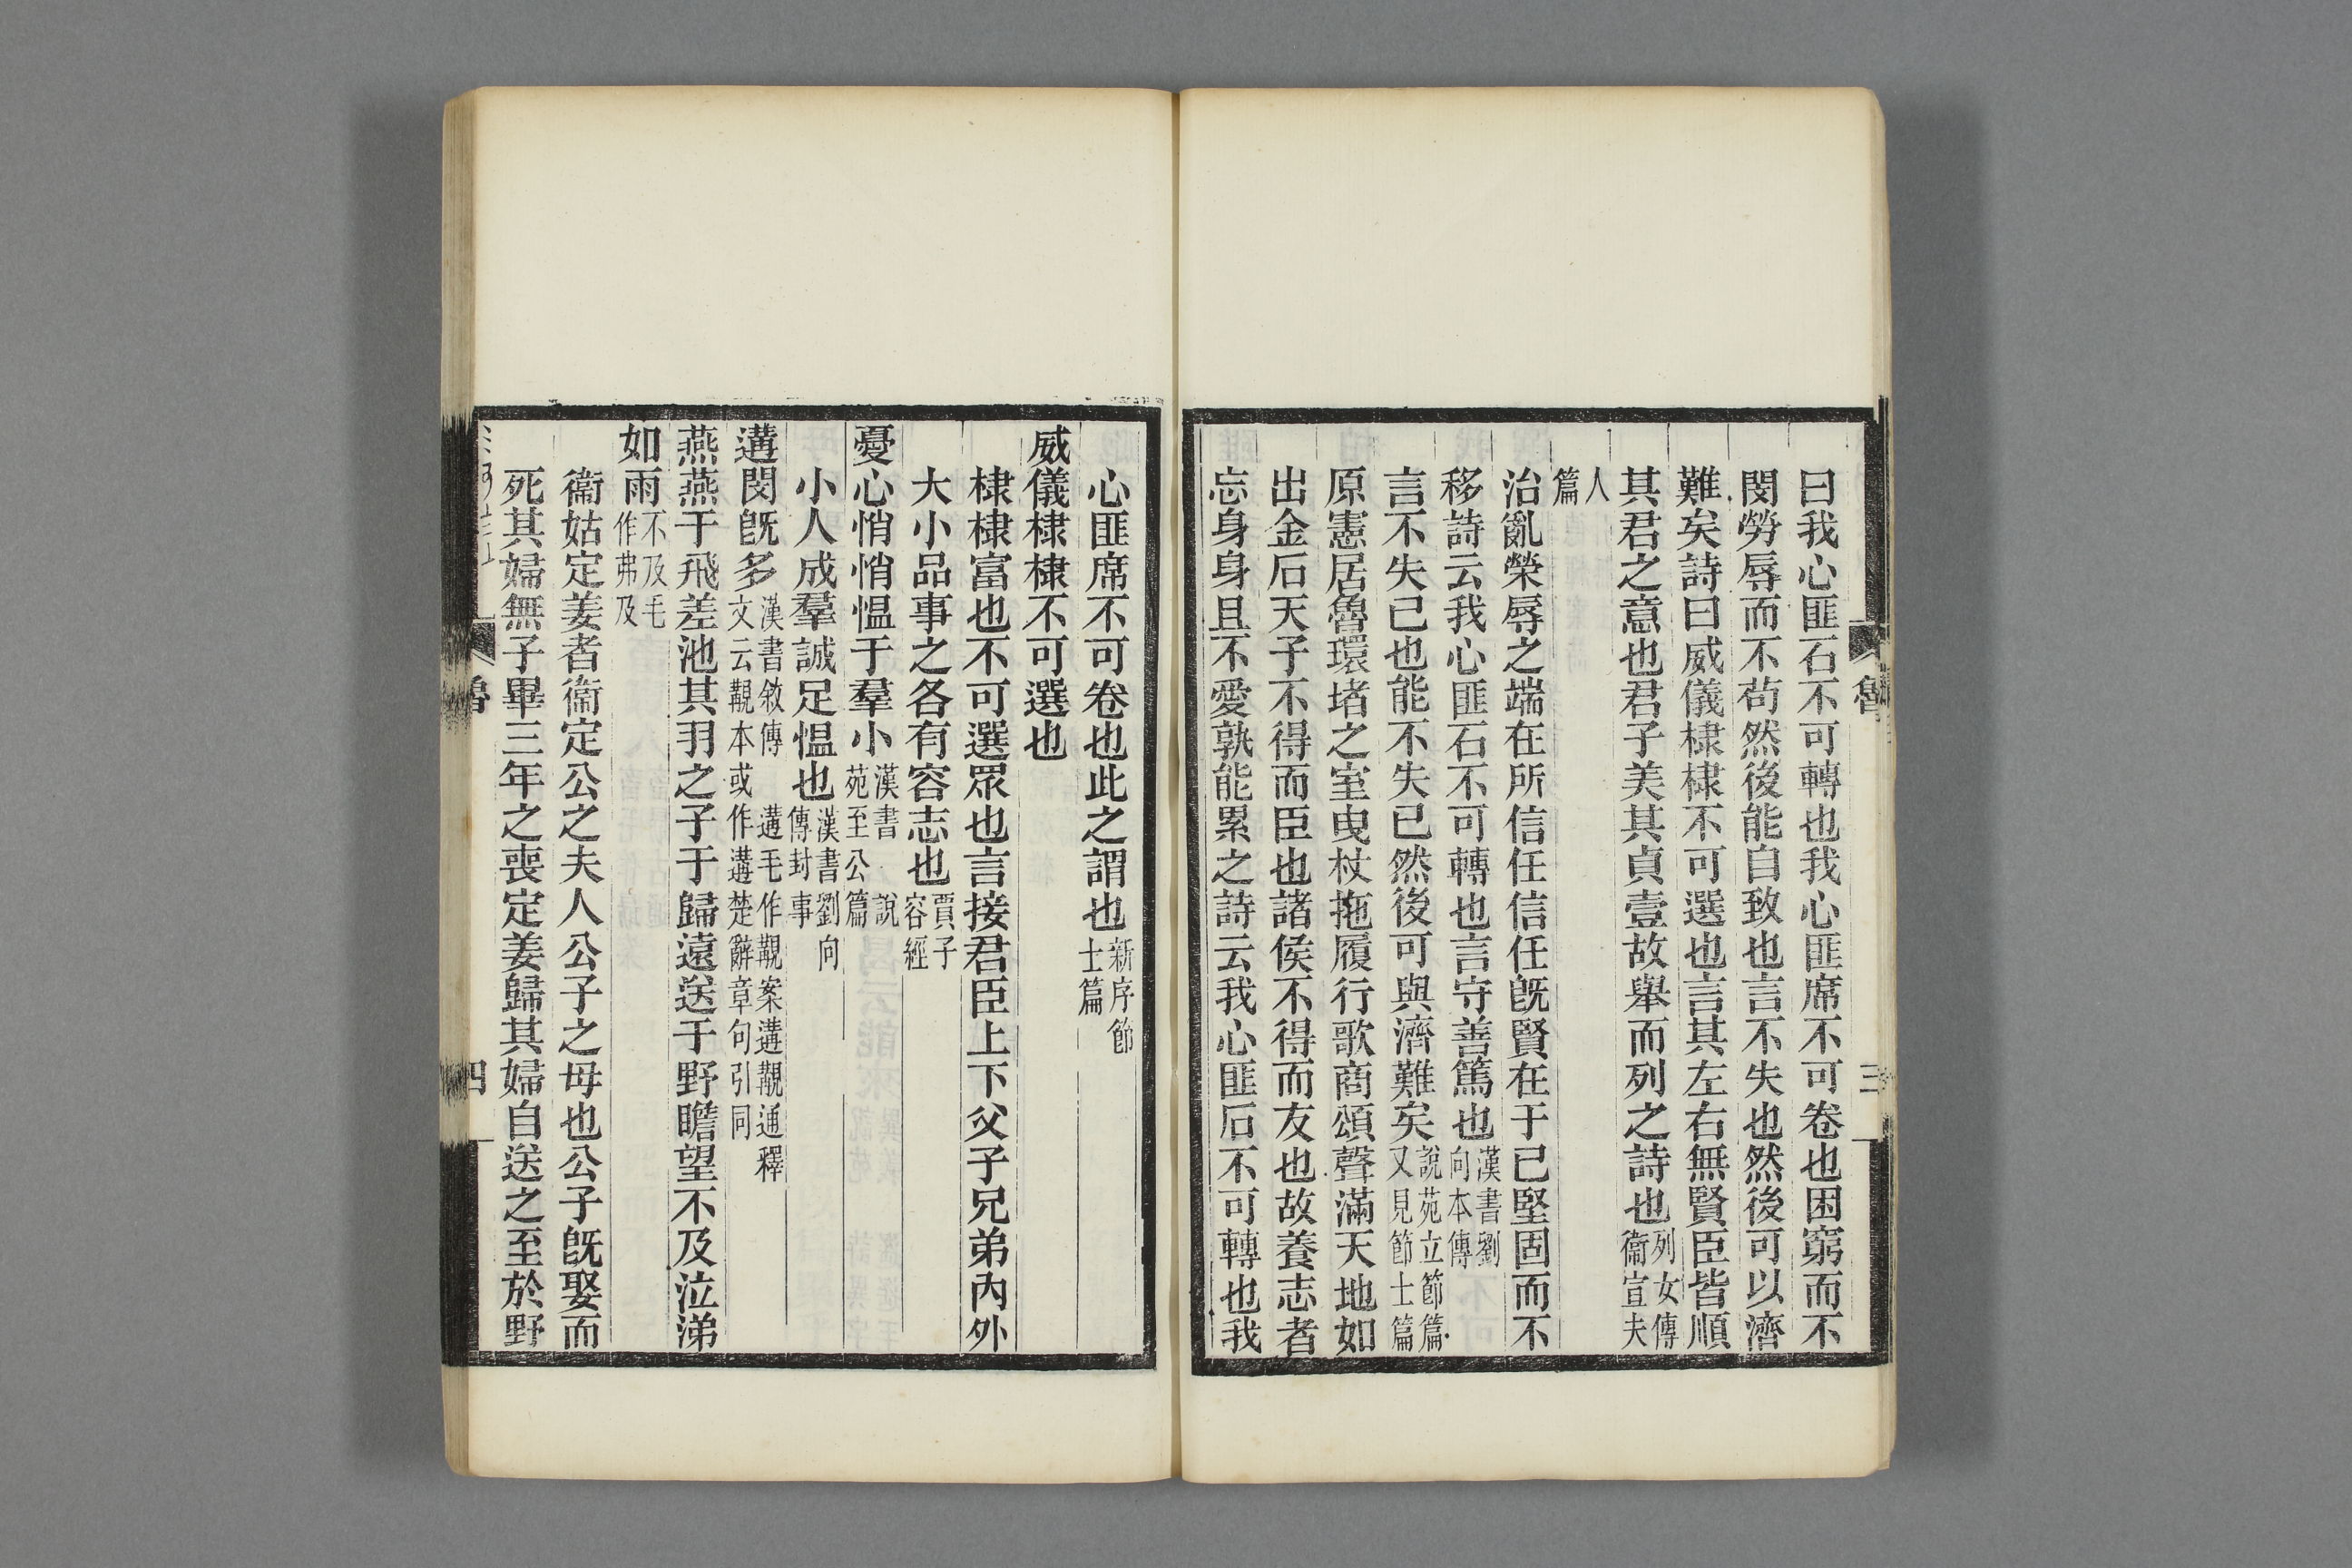 曰我心匪石不可轉也我心匪席不可卷也困窮而不
閔勞辱而不苟然後能自致也言不失也然後可以濟
難矣詩曰威儀棣棣不可選也言其左右無賢臣皆順
其君之意也君子美其貞壹故舉而列之詩也列女傳衞宣夫
人篇
治亂榮辱之端在所信任信任旣賢在于已堅固而不
移詩云我心匪石不可轉也言守善篤也漢書劉向本傳
言不失已也能不失已然後可與濟難矣說苑立節篇又見節士篇
原憲居魯環堵之室曳杖拖履行歌商頌聲滿天地如
出金石天子不得而臣也諸侯不得而友也故養志者
忘身身且不愛孰能累之詩云我心匪石不可轉也我
魯
三
心匪席不可卷也此之謂也新序節士篇
威儀棣棣不可選也
棣棣富也不可選眾也言接君臣上下父子兄弟內外
大小品事之各有容志也賈子容經
憂心悄悄慍于羣小漢書 說苑至公篇
小人成羣誠足慍也漢書劉向傳封事
遘閔旣多漢書敘傳 遘毛作覯案遘覯通釋文云覯本或作遘楚辭章句引同
燕燕于飛差池其羽之子于歸遠送于野瞻望不及泣涕
如雨不及毛作弗及
衞姑定姜者衞定公之夫人公子之母也公子旣娶而
死其婦無子畢三年之喪定姜歸其婦自送之至於野
魯
四